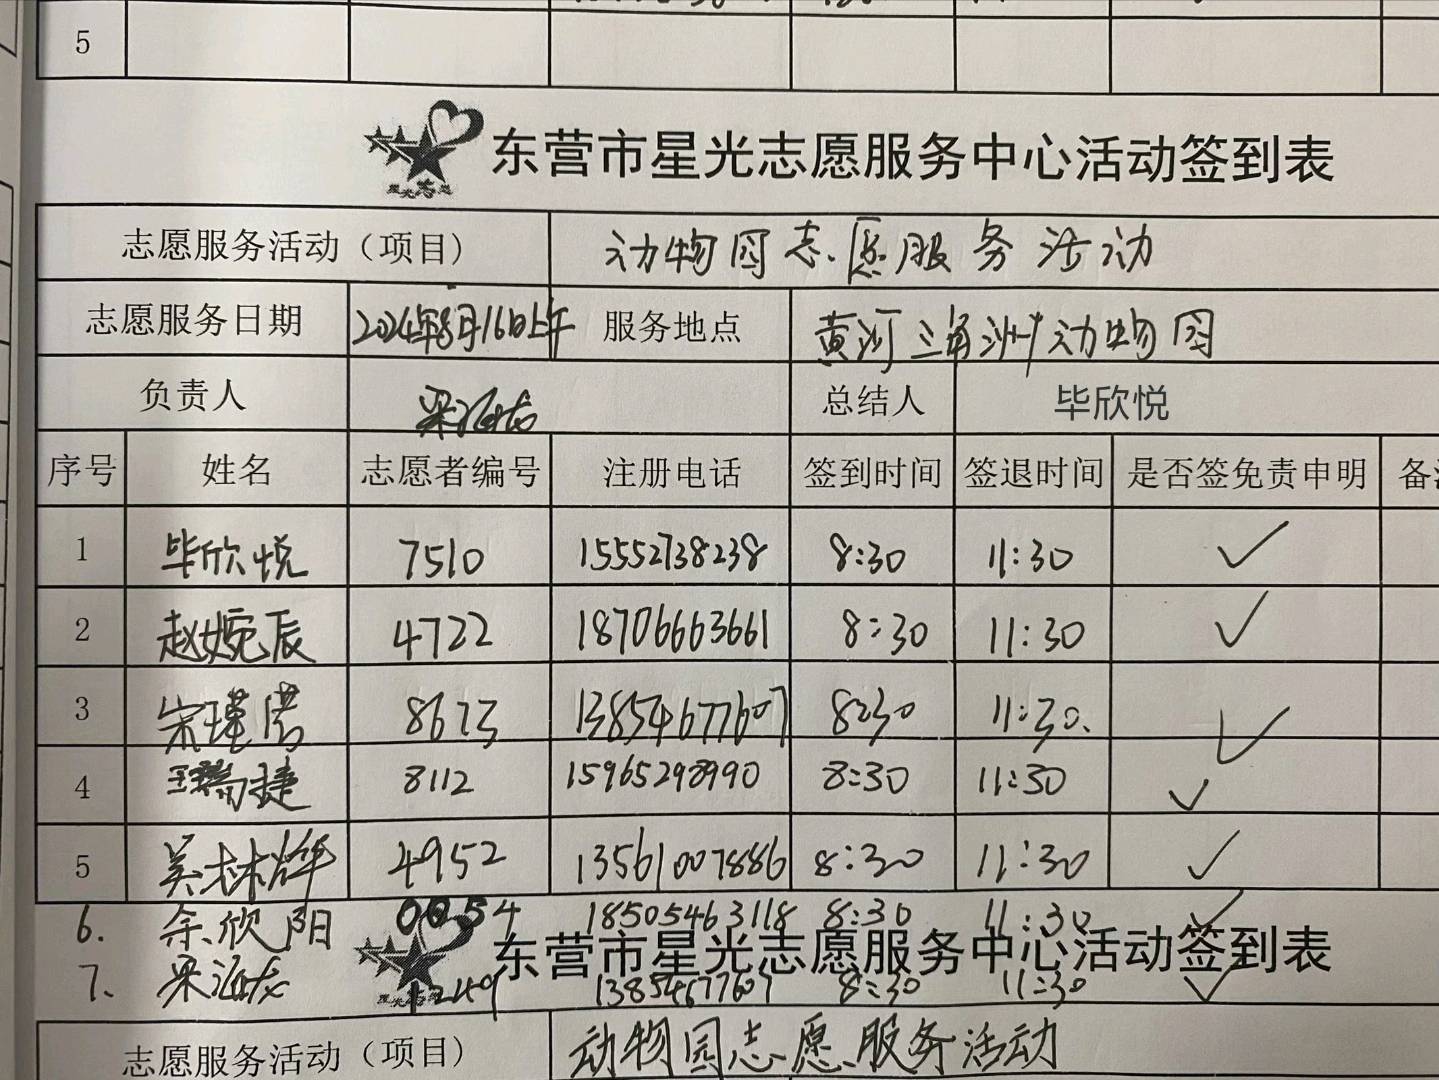 5
东营市星光志愿服务中心活动签到表
星光志愿
志愿服务活动（项目） 动物园志愿服务活动
志愿服务日期 2024年8月16日上午 服务地点 黄河三角洲动物园
负责人 总结人 毕欣悦
序号 姓名 志愿者编号 注册电话 签到时间 签退时间 是否签免责申明
1 毕欣悦 7510 15552738238 8:30 11:30 ✓
2 赵婉辰 4722 18706663661 8:30 11:30 ✓
3 宋瑾 8673 13854677607 8:30 11:30. ✓
4 捷 8112 15965298990 8:30 11:30 ✓
5 吴林烨 4952 13561007886 8:30 11:30 ✓
6. 余欣阳 0054 18505463118 8:30 11:30 ✓
东营市星光志愿服务中心活动签到表
7. 梁 1249 13854677607 8:30 11:30 ✓
志愿服务活动（项目） 动物园志愿服务活动